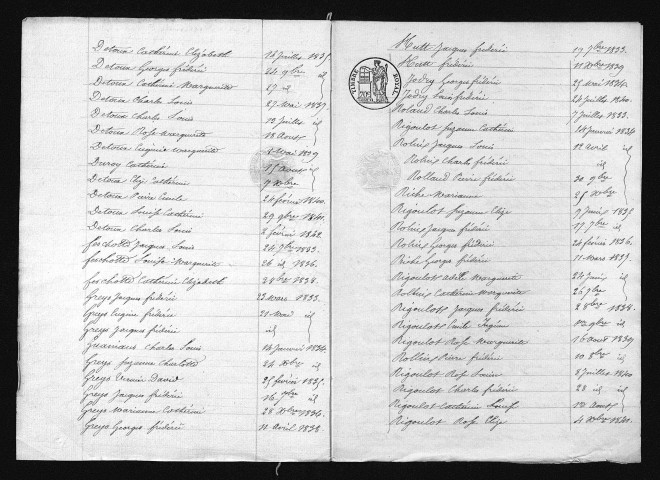 Detoux Catherine Elizabeth 14 Juillet 1835
Detoux Georges frédéric 24 9bre id
Detoux Catherine Marguerite 27 id
Detoux Charles Louis 27 Mai 1837
Detoux Charles Louis 12 Juillet id
Detoux Rose Marguerite 18 Aout id
Detoux Eugénie Marguerite Mai 1839
Duroy Catherine 15 aout id
Detoux Elize Catherine 9 Xbre
Detoux Pierre Emile 24 février 1840
Detoux Louise Catherine 29 9bre 1841
Detoux Charles Louis 2 février 1842
ferchotte Jacques Louis 24 7bre 1833
ferchotte Louise Marguerite 26 id 1836
ferchotte Catherine Elizabeth 28 8bre 1838
Greys Jacques frédéric 23 Mars 1833
Greys Eugène frédéric 21 Mai id
Greys Jacques frédéric id
Charles Louis 14 Janvier 1834
Greys Suzanne Charlotte 24 Xbre id
Greys David 25 février 1835
Greys Jacques frédéric 16 9bre id
Greys Marianne Catherine 28 Xbre 1836
Greys Georges frédéric 11 Avril 1838
TIMBRE ROYAL
Hutt Jacques frédéric 19 7bre 1833
Hutt frédéric 11 Xbre 1839
Jodry Georges frédéric 25 Mai 1834
Jodry Louis frédéric 24 Juillet 1840
Roland Charles Louis 7 Juillet 1833
Rigoulot Suzanne Catherine 14 Janvier 1834
Rolins Jacques Louis 12 Avril id
Rolins Charles frédéric id
Rolland Pierre frédéric 30 9bre
Riche Marianne 25 Xbre
Rigoulot Suzanne Elize 7 Juin 1835
Rolins Jacques frédéric 17 7bre id
Rolins Georges frédéric 24 février 1836
Riche Georges frédéric 11 Mars 1837
Rigoulot Adèle Marguerite 24 Juin id
Rollins Catherine Marguerite 26 9bre
Rigoulot Jacques frédéric 28bre 1838
Rigoulot Emile Eugène 12 9bre id
Rigoulot Rose Marguerite 16 aout 1839
Rollins Pierre frédéric 10 8bre id
Rigoulot Rose Louise 2 Juillet 1840
Rigoulot Charles frédéric 28 id
Rigoulot Catherine Louise 12 Aout
Rigoulot Rose Elize 4 Xbre 1840